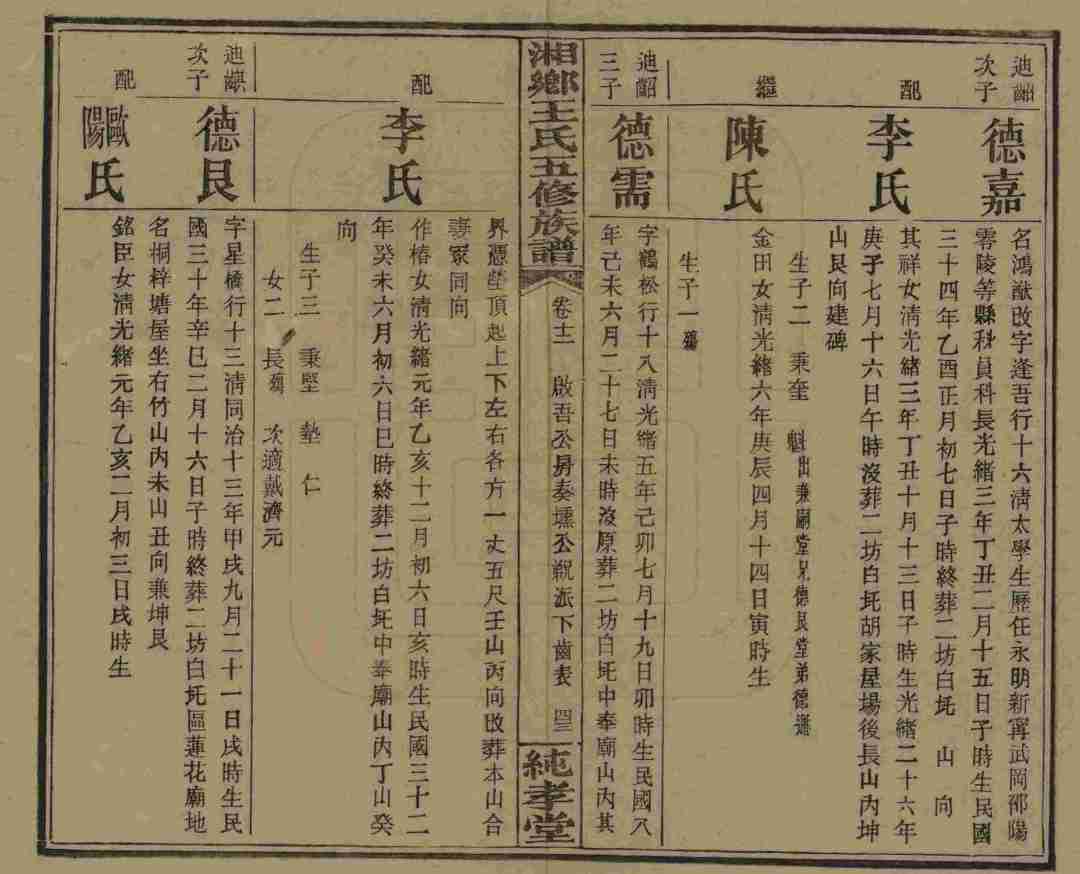 迪韶
次子
德嘉
名鴻猷改字逢吾行十六淸太學生歷任永明新寗武岡邵陽
零陵等縣科員科長光緒三年丁丑二月十五日子時生民國
三十四年乙酉正月初七日子時終葬二坊白圫 山 向
配
李氏
其祥女淸光緒三年丁丑十月十三日子時生光緒二十六年
庚子七月十六日午時沒葬二坊白圫胡家屋場後長山內坤
山艮向建碑
繼
陳氏
生子二 秉奎 魁出兼嗣堂兄德艮堂弟德遜
金田女淸光緒六年庚辰四月十四日寅時生
生子一殤
迪韶
三子
德需
字鶴松行十八淸光緒五年己卯七月十九日卯時生民國八
年己未六月二十七日未時沒原葬二坊白圫中奉廟山內其
湘鄉王氏五修族譜
卷十二
啟吾公房奏壎公派下齒表
純孝堂
界憑塋頂起上下左右各方一丈五尺壬山丙向改葬本山合
妻冢同向
配
李氏
作椿女淸光緒元年乙亥十二月初六日亥時生民國三十二
年癸未六月初六日巳時終葬二坊白圫中奉廟山內丁山癸
向
生子三 秉堅 塾 仁
女二 長殤 次適戴濟元
次子
德艮
字星橋行十三淸同治十三年甲戌九月二十一日戌時生民
國三十年辛巳二月十六日子時終葬二坊白圫區蓮花廟地
名桐梓塘屋坐右竹山內未山丑向兼坤艮
配
歐陽氏
銘臣女淸光緒元年乙亥二月初三日戌時生